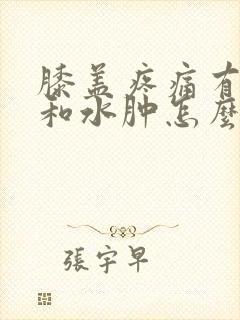 膝盖疼痛有
和水肿怎麼
張宇早